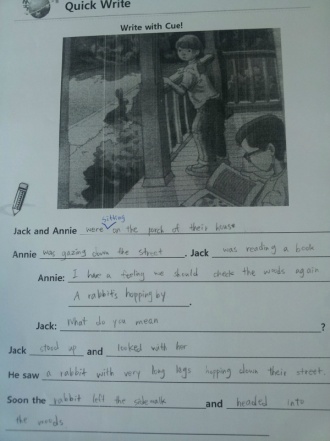 Quick Write
Write with Cue!
sitting
Jack and Annie were on the porch of their house
Annie was gazing down the street. Jack was reading a book
Annie: I have a feeling we should check the woods again
A rabbit's hopping by.
Jack: What do you mean?
Jack stood up and looked with her
He saw a rabbit with very long legs hopping down their street.
Soon the rabbit left the sidewalk and headed into
the woods